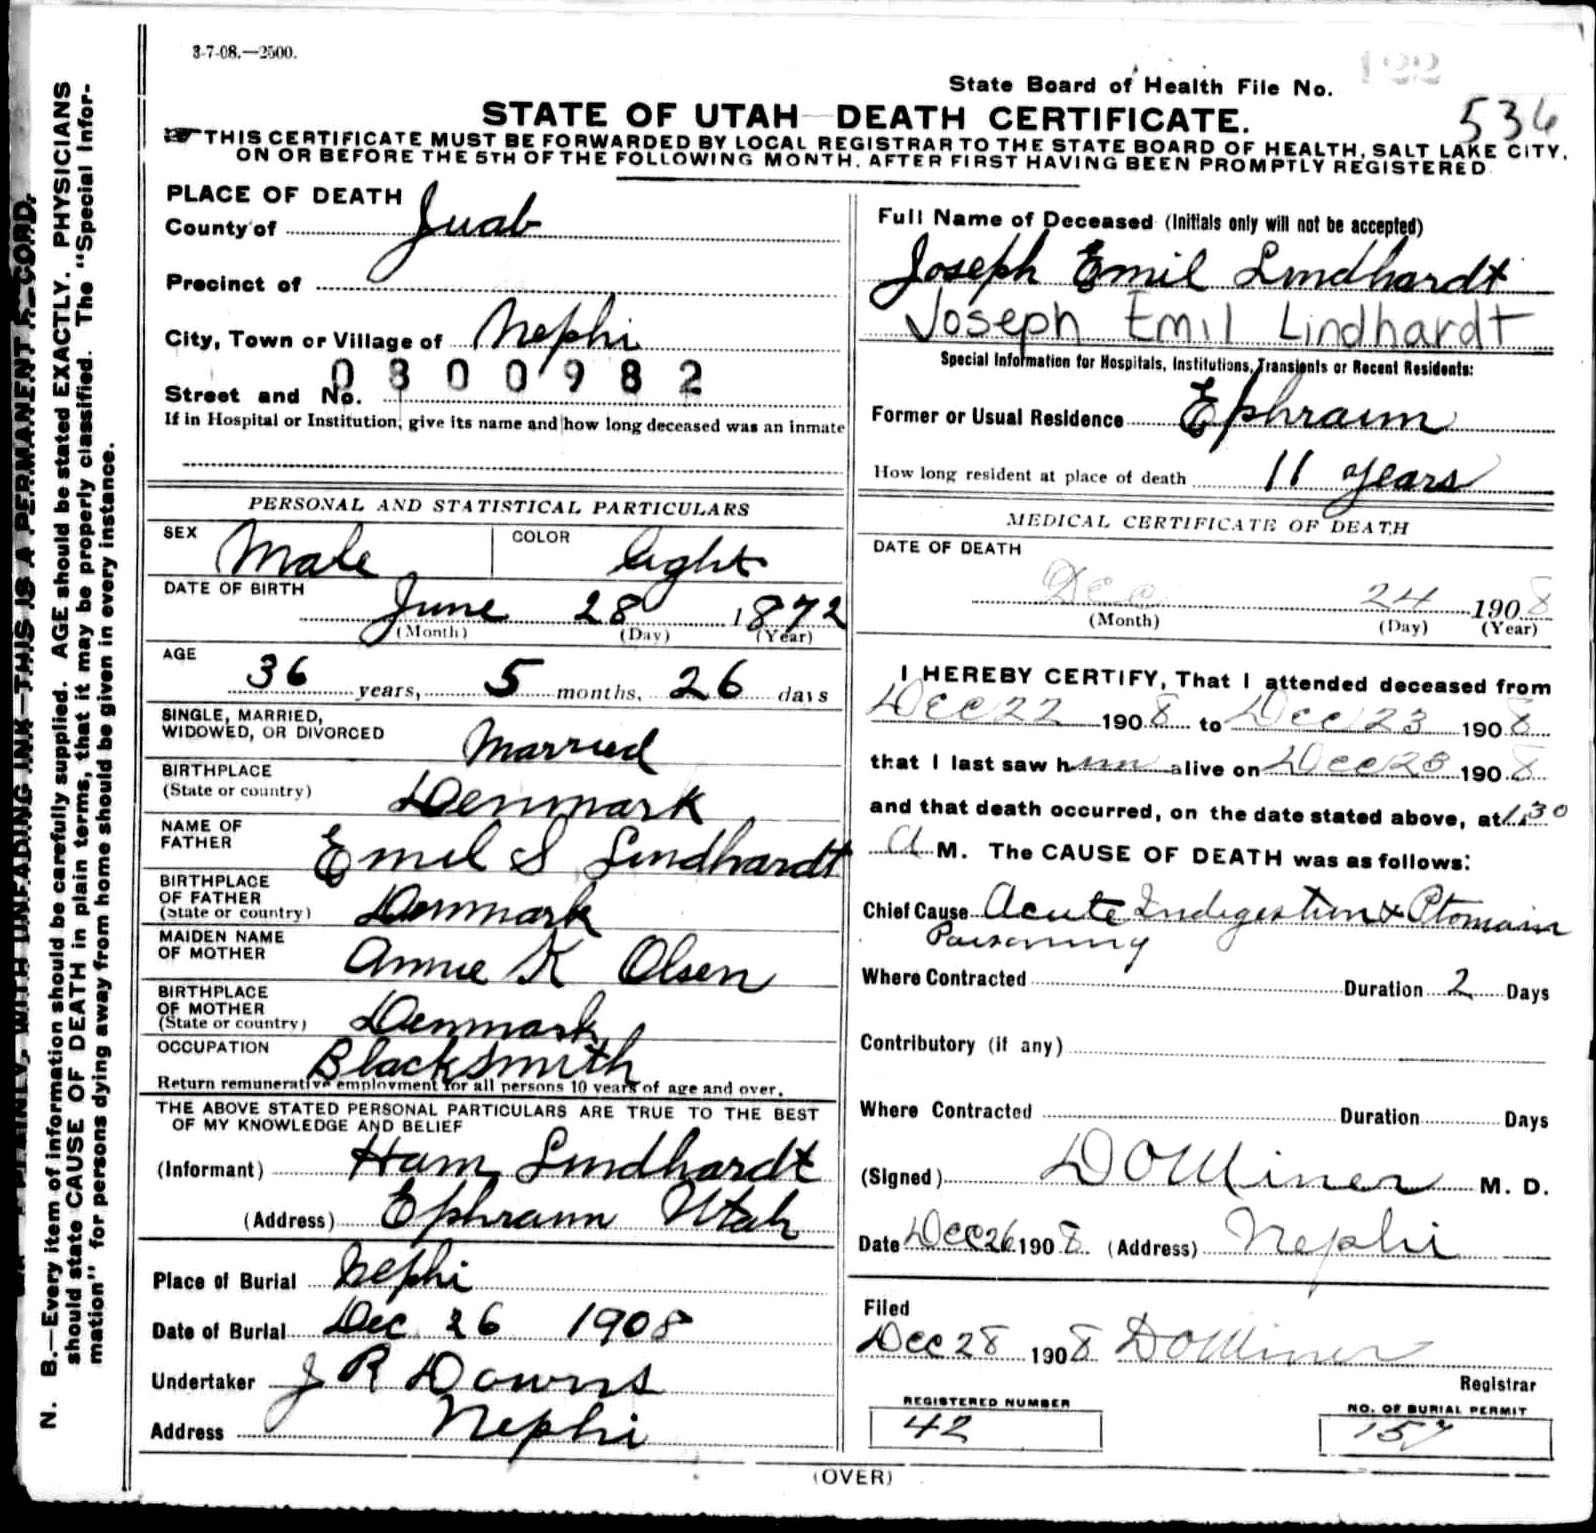 3-7-08.—2500.
State Board of Health File No. 122
536
STATE OF UTAH—DEATH CERTIFICATE.
THIS CERTIFICATE MUST BE FORWARDED BY LOCAL REGISTRAR TO THE STATE BOARD OF HEALTH, SALT LAKE CITY,
ON OR BEFORE THE 5TH OF THE FOLLOWING MONTH. AFTER FIRST HAVING BEEN PROMPTLY REGISTERED
PLACE OF DEATH
County of Juab
Precinct of
City, Town or Village of Nephi
0300982
Street and No.
If in Hospital or Institution, give its name and how long deceased was an inmate
PERSONAL AND STATISTICAL PARTICULARS
SEX Male COLOR light
DATE OF BIRTH
June 28 1872
(Month) (Day) (Year)
AGE
36 years, 5 months, 26 days
SINGLE, MARRIED,
WIDOWED, OR DIVORCED Married
BIRTHPLACE
(State or country) Denmark
NAME OF
FATHER Emil S Lindhardt
BIRTHPLACE
OF FATHER
(State or country) Denmark
MAIDEN NAME
OF MOTHER Annie K Olsen
BIRTHPLACE
OF MOTHER
(State or country) Denmark
OCCUPATION Blacksmith
Return remunerative employment for all persons 10 years of age and over.
THE ABOVE STATED PERSONAL PARTICULARS ARE TRUE TO THE BEST
OF MY KNOWLEDGE AND BELIEF
(Informant) Lindhardt
(Address) Ephraim Utah
Place of Burial Nephi
Date of Burial Dec 26 1908
Undertaker J R Downs
Address Nephi
Full Name of Deceased (Initials only will not be accepted)
Joseph Emil Lindhardt
Joseph Emil Lindhardt
Special Information for Hospitals, Institutions, Transients or Recent Residents:
Former or Usual Residence Ephraim
How long resident at place of death 11 years
MEDICAL CERTIFICATE OF DEATH
DATE OF DEATH
Dec 24 1908
(Month) (Day) (Year)
I HEREBY CERTIFY, That I attended deceased from
Dec 22 1908 to Dec 23 1908
that I last saw him alive on Dec 23 1908
and that death occurred, on the date stated above, at 1.30
A M. The CAUSE OF DEATH was as follows:
Chief Cause Acute Indigestion & Ptomain
Poisoning
Where Contracted Duration 2 Days
Contributory (if any)
Where Contracted Duration Days
(Signed) D O Miner M. D.
Date Dec 26 1908 (Address) Nephi
Filed
Dec 28 1908 D O Miner
Registrar
REGISTERED NUMBER
42
NO. OF BURIAL PERMIT
157
(OVER)
PLAINLY, WITH UNFADING INK—THIS IS A PERMANENT RECORD.
N. B.—Every item of information should be carefully supplied. AGE should be stated EXACTLY. PHYSICIANS
should state CAUSE OF DEATH in plain terms, that it may be properly classified. The "Special Infor-
mation" for persons dying away from home should be given in every instance.